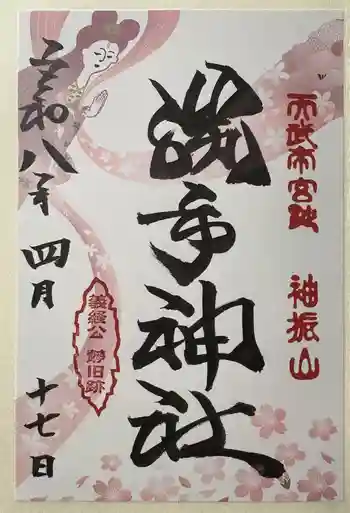 天武帝宮趾　袖振山
勝手神社
義経公　勢旧跡
令和八年四月十七日